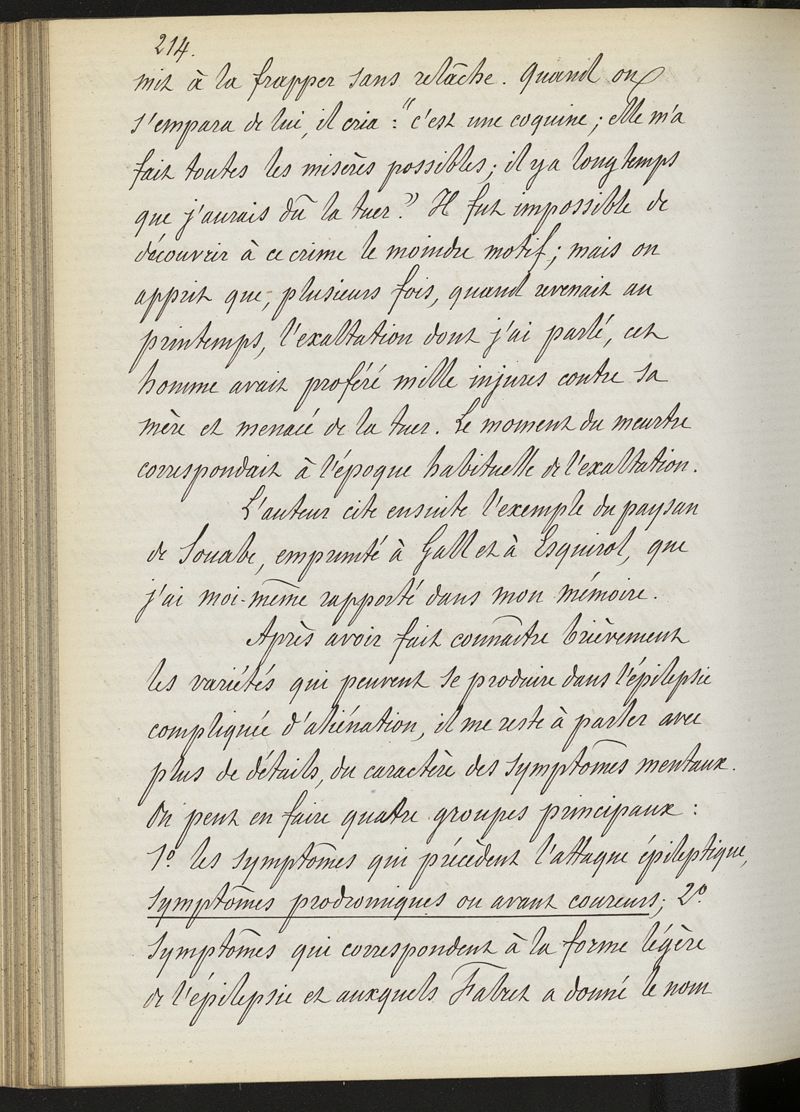 214.
mit à la frapper sans relâche. Quand on
s'empara de lui, il cria : "c'est une coquine ; elle m'a
fait toutes les misères possibles ; il y a longtemps
que j'aurais dû la tuer." Il fut impossible de
découvrir à ce crime le moindre motif ; mais on
apprit que, plusieurs fois, quand revenait au
printemps, l'exaltation dont j'ai parlé, cet
homme avait proféré mille injures contre sa
mère et menacé de la tuer. Le moment du meurtre
correspondait à l'époque habituelle de l'exaltation.
L'auteur cite ensuite l'exemple du paysan
de Souabe, emprunté à Gall et à Esquirol, que
j'ai moi-même rapporté dans mon mémoire.
Après avoir fait connaître brièvement
les variétés qui peuvent se produire dans l'épilepsie
compliquée d'aliénation, il me reste à parler avec
plus de détails, du caractère des symptômes mentaux.
On peut en faire quatre groupes principaux :
1° les symptômes qui précèdent l'attaque épileptique,
symptômes prodromiques ou avant coureurs ; 2°
symptômes qui correspondent à la forme légère
de l'épilepsie et auxquels Falret a donné le nom